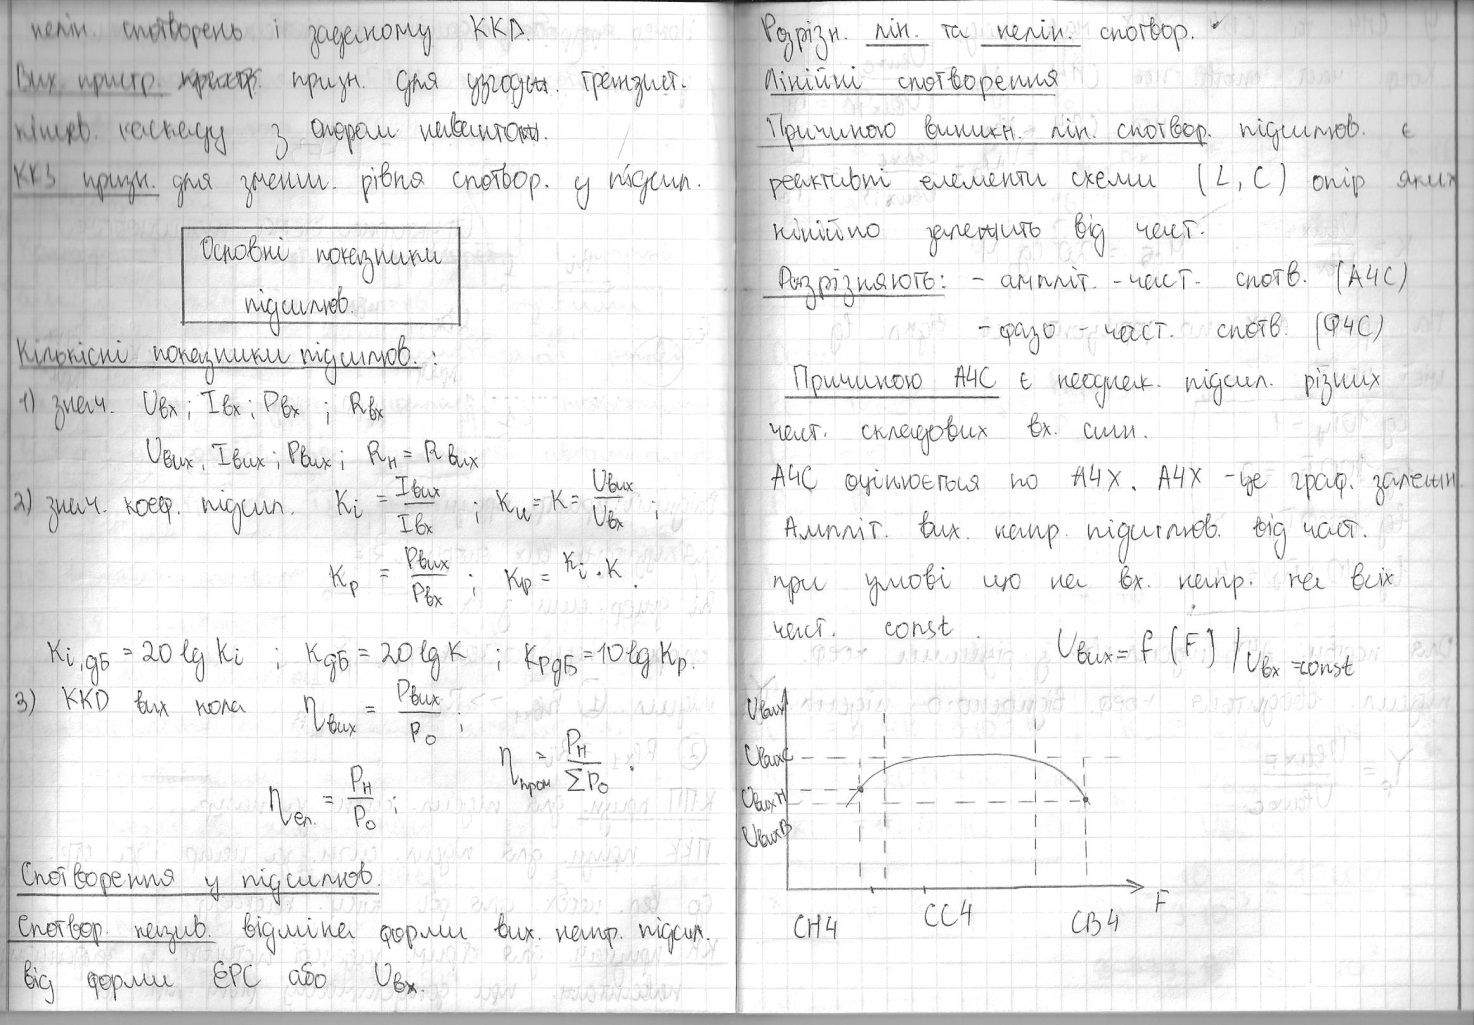 нелін. спотворень і заданому ККД.
Вих. пристр. призн. для узгодж. транзист.
кінцев. каскаду з опором навантаж.
ККЗ призн. для зменш. рівня спотвор. у підсил.
Основні показники
підсилюв.
Кількісні показники підсилюв. :
1) знач. Uвх ; Iвх ; Pвх ; Rвх
Uвих ; Iвих ; Pвих ; Rн = Rвих
2) знач. коеф. підсил. Ki = Iвих/Iвх ; Ku = K = Uвих/Uвх ;
Kp = Pвих/Pвх ; Kp = Ki · K .
Ki,дБ = 20 lg Ki ; KдБ = 20 lg K ; KPдБ = 10 lg Kp.
3) ККД вих кола ηвих = Pвих/P0 ;
ηел. = Pн/P0 ; ηпром = Pн/ΣP0 .
Спотворення у підсилюв.
Спотвор. назив. відміна форми вих. напр. підсил.
від форми ЕРС або Uвх.
Розрізн. лін. та нелін. спотвор.
Лінійні спотворення
Причиною виникн. лін. спотвор. підсилюв. є
реактивні елементи схеми (L, C) опір яких
лінійно залежить від част.
Розрізняють: - ампліт. - част. спотв. (АЧС)
- фазо - част. спотв. (ФЧС)
Причиною АЧС є неоднак. підсил. різних
част. складових вх. сигн.
АЧС оцінюється по АЧХ. АЧХ - це граф. залежн.
Ампліт. вих. напр. підсилюв. від част.
при умові що на вх. напр. на всіх
част. const.
Uвих = f (F) / Uвх = const
Uвих
UвихС
UвихН
UвихВ
F
СНЧ
ССЧ
СВЧ